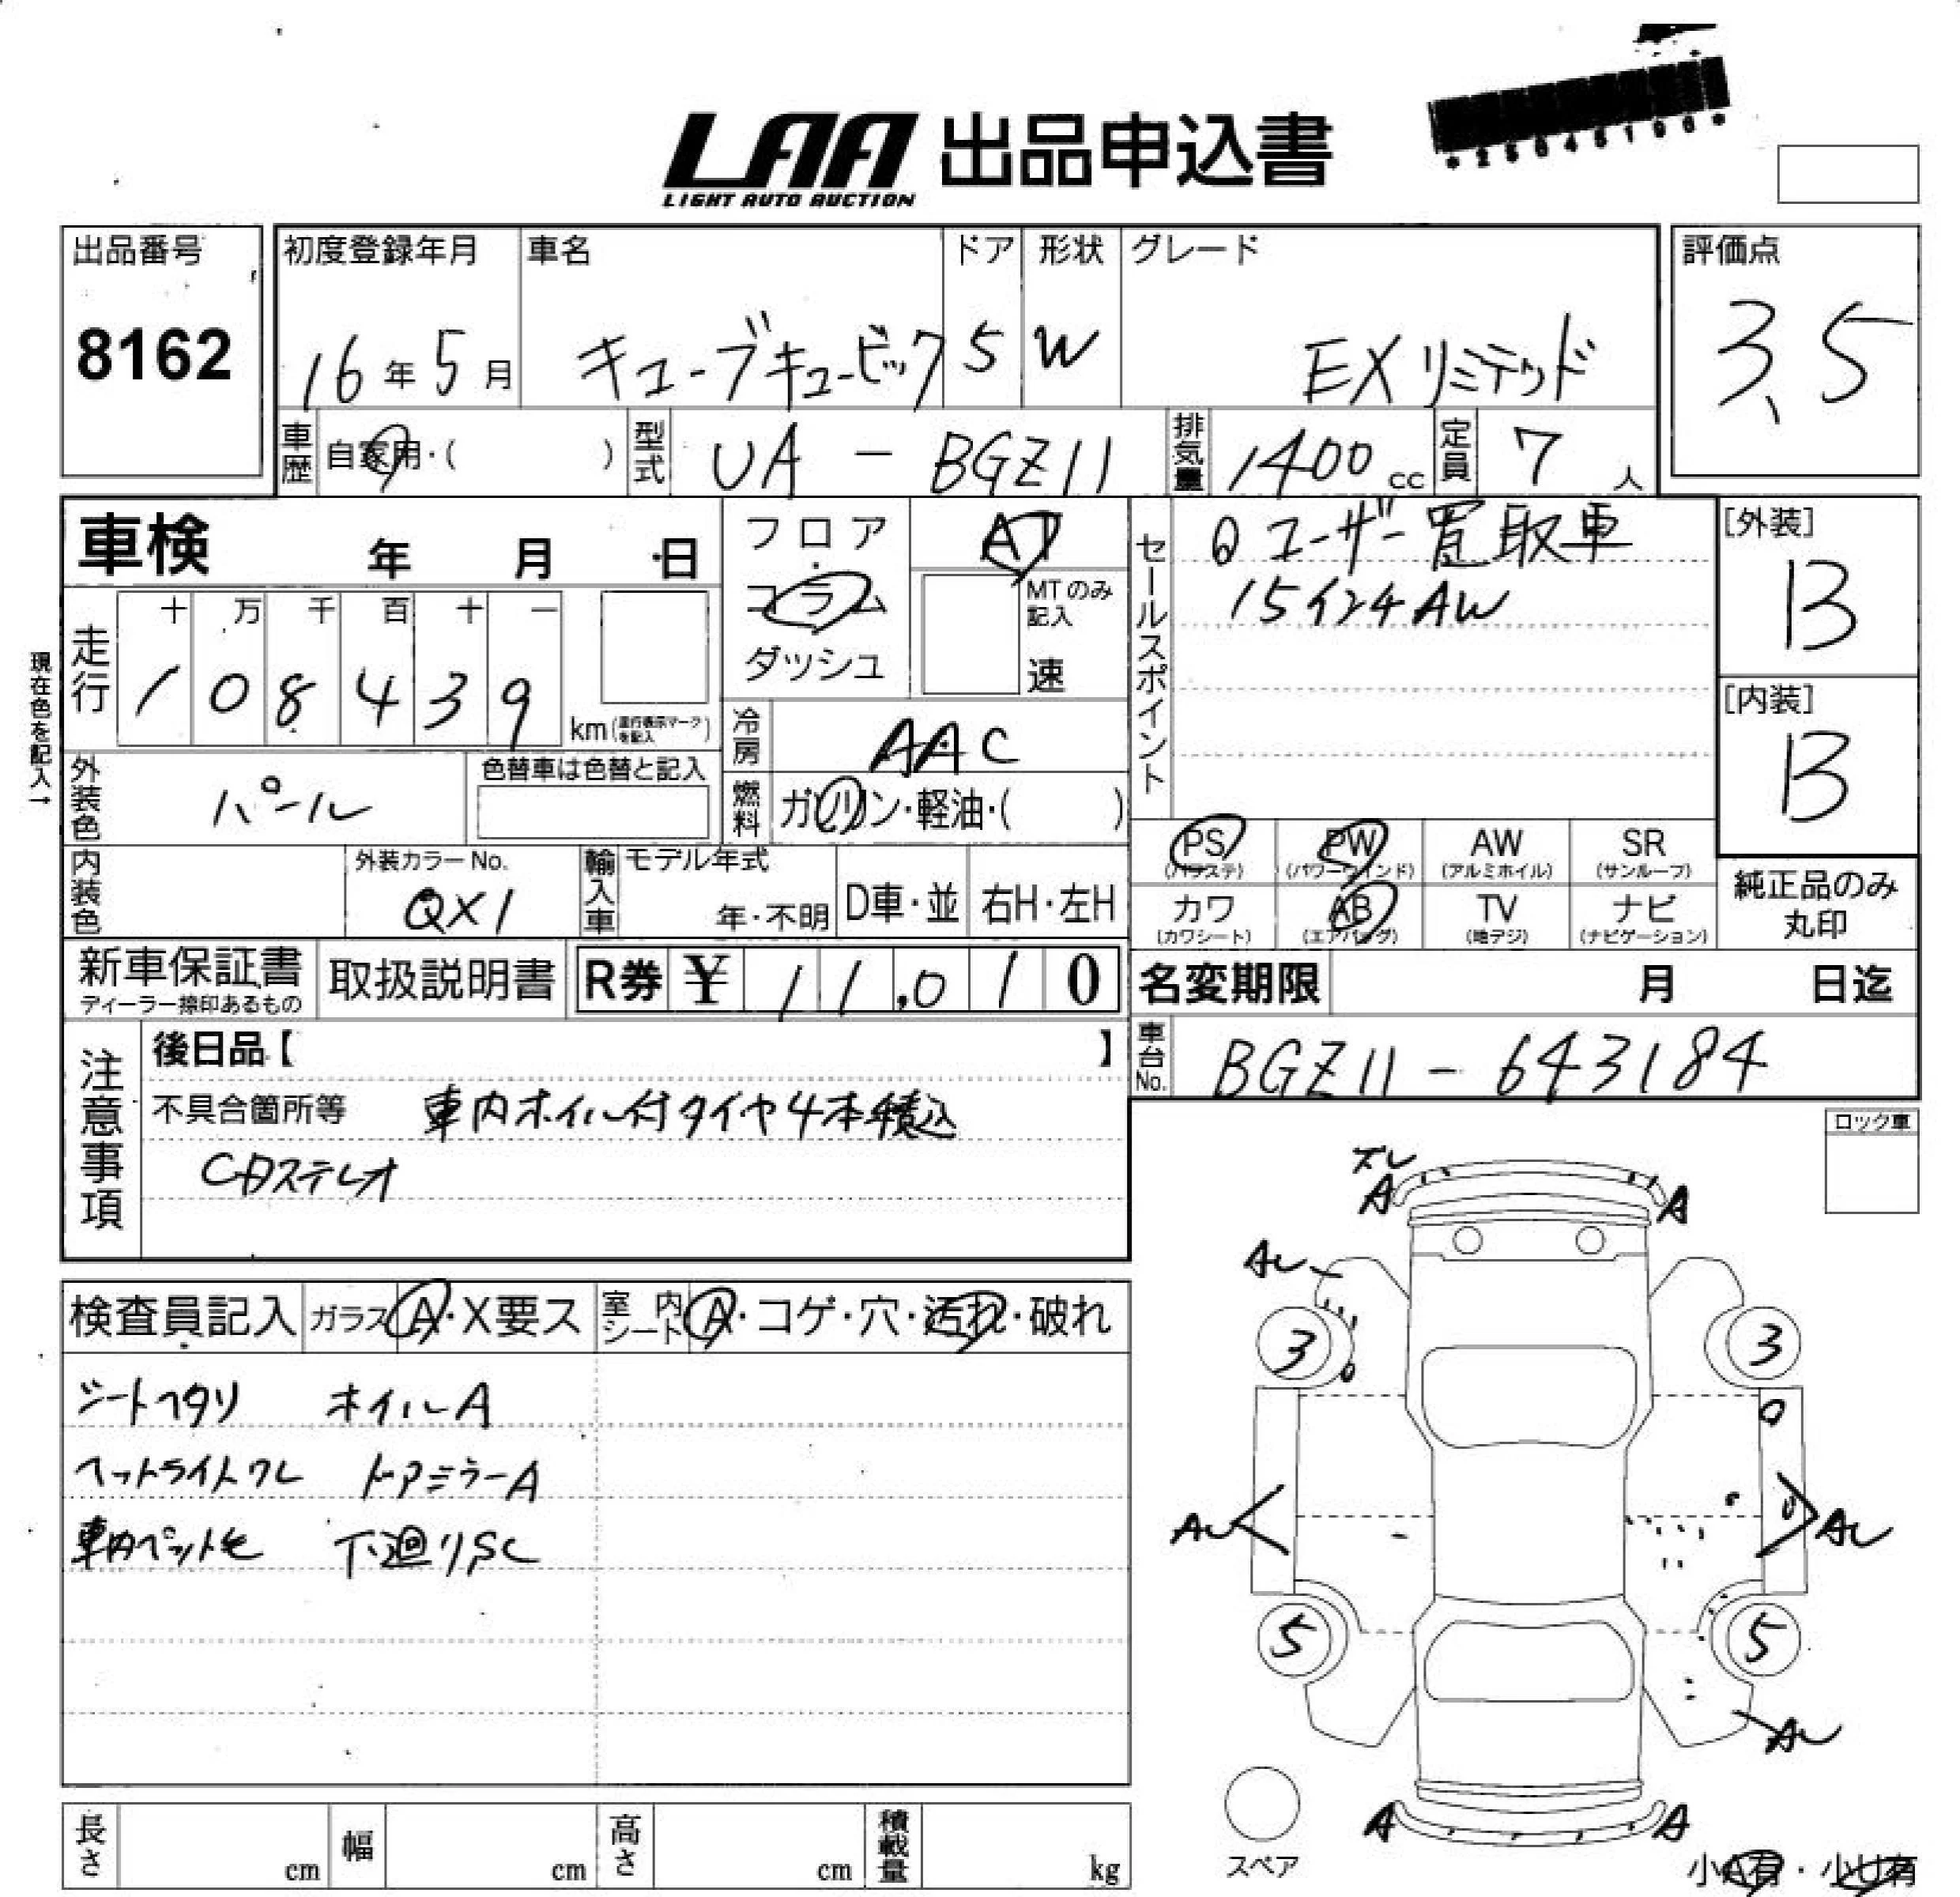 *25045190*
LAA 出品申込書
LIGHT AUTO AUCTION
出品番号
8162
初度登録年月
16年5月
車名
キューブキュービック
ドア
5
形状
W
グレード
EXリミテッド
評価点
3.5
車歴
自家用・( )
型式
UA - BGZ11
排気量
1400 cc
定員
7人
車検 年 月 日
フロア
コラム
ダッシュ
AT
MTのみ記入
速
セールスポイント
ユーザー買取車
15インチAW
[外装]
B
[内装]
B
現在色を記入→
走行
十 万 千 百 十 一
1 0 8 4 3 9
km(走行表示マークを記入)
冷房
AAC
外装色
パール
色替車は色替と記入
燃料
ガソリン・軽油・( )
PS
(パワステ)
PW
(パワーウインド)
AW
(アルミホイル)
SR
(サンルーフ)
カワ
(カワシート)
AB
(エアバッグ)
TV
(地デジ)
ナビ
(ナビゲーション)
純正品のみ
丸印
内装色
外装カラーNo.
QX1
輸入車
モデル年式
年・不明
D車・並
右H・左H
新車保証書
ディーラー捺印あるもの
取扱説明書
R券 ¥ 11,010
名変期限 月 日迄
車台No.
BGZ11 - 643184
注意事項
後日品【 】
不具合箇所等 車内ホイル付タイヤ4本積込
CDステレオ
ロック車
検査員記入
ガラス A・X要ス
室内シート A・コゲ・穴・汚れ・破れ
シートヘタリ ホイルA
ヘットライトワレ ドアミラーA
車内ペット毛 下廻りSC
ズレ
A A
AU
3 3
AU AU
5 5
AU
A A
スペア
小A有・小U有
長さ cm
幅 cm
高さ cm
積載量 kg